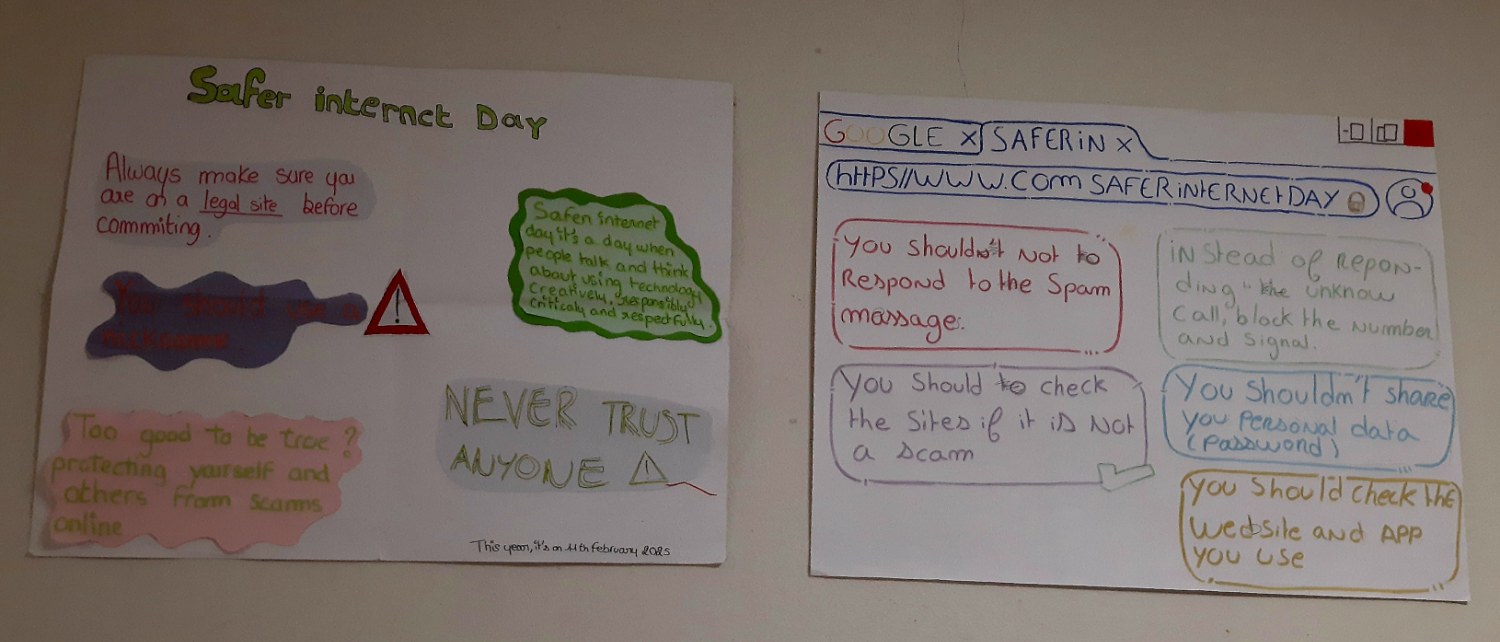 Safer internet Day
Always make sure you
are on a legal site before
commiting.
You should use a
nickname
Too good to be true?
protecting yourself and
others from scams
online
Safer internet
day it's a day when
people talk and think
about using technology
creatively, responsibly
criticaly and respectfully.
NEVER TRUST
ANYONE
This year, it's on 11th february 2025
GOOGLE X SAFERiN X
(httPS//WWW.COm SAFERiNtERNEtDAY
you shouldn't Not to
RESPOND to the Spam
massage.
iNStead of REPON-
ding, the unknow
call, block the Number
and signal.
you should to check
the Sites if it is Not
a scam
You Shouldn't share
you personal data
(password)
you should check the
website and APP
you use